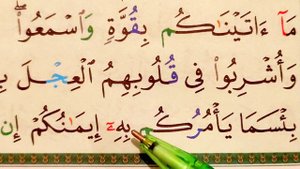 مَآ ءَاتَيْنَـٰكُم بِقُوَّةٍ وَٱسْمَعُوا۟ ۖ
وَأُشْرِبُوا۟ فِى قُلُوبِهِمُ ٱلْعِجْلَ بِ
بِئْسَمَا يَأْمُرُكُم بِهِۦٓ إِيمَـٰنُكُمْ إِن